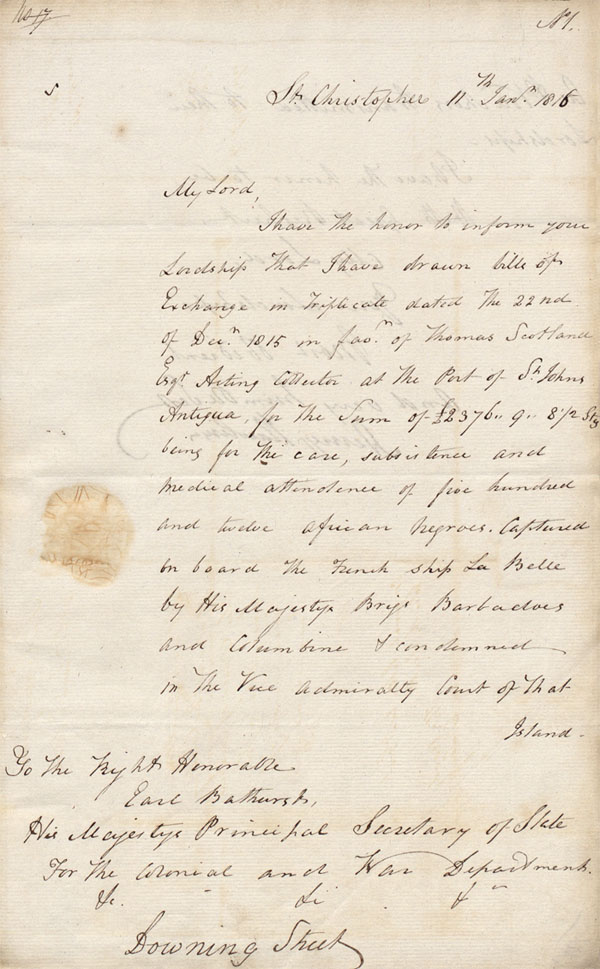 No 17
No 1.
5
St. Christopher 11th Jany. 1816
My Lord,
I have the honor to inform your
Lordship that I have drawn bills of
Exchange in triplicate dated the 22nd
of Decr. 1815 in favor. of Thomas Scotland
Esqr. Acting Collector at the Port of St. Johns
Antigua, for the Sum of £2376.. 9.. 8 1/2 Stg
being for the care, subsistence and
medical attendence of five hundred
and twelve african negroes. Captured
on board the French ship La Belle
by His Majestys Brigs Barbadoes
and Columbine & condemned
in the Vice Admiralty Court of that
Island.
To the Right Honorable
Earl Bathurst,
His Majestys Principal Secretary of State
For the Colonial and War Department.
&c. &c &c
Downing Street